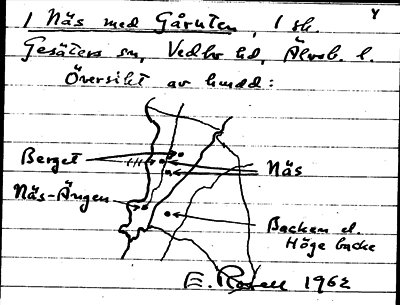 1 Näs med Gåruten, 1 sk.
Gesäters sn, Vedbo hd, Älvsb. l.
Översikt av hmdd:
Berget
Näs
Näs-Ängen
Backen el.
Höge backe
E. Rosell 1962